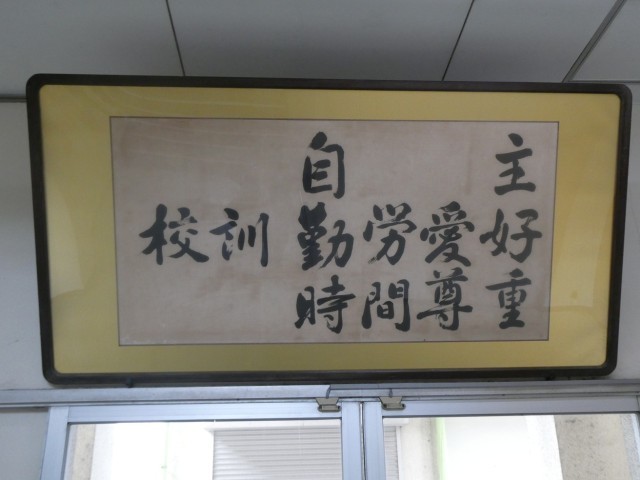 校訓
自主
勤労愛好
時間尊重